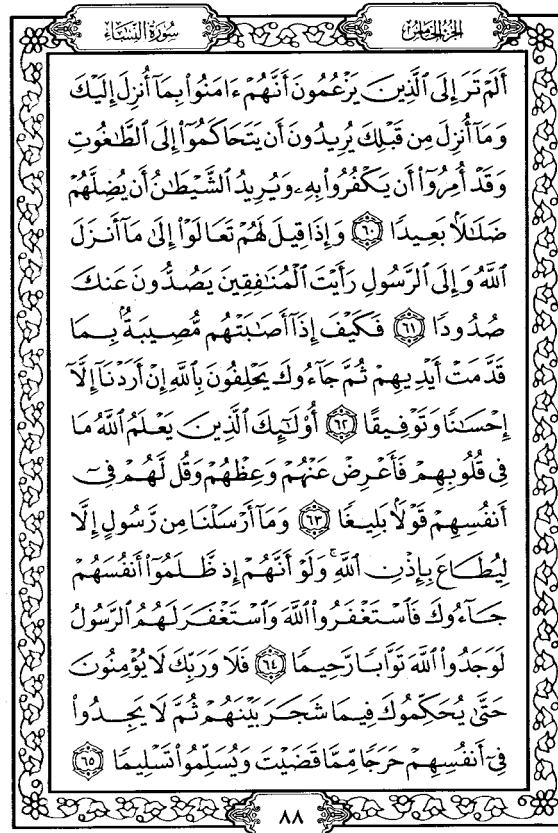 سُورَةُ النِّسَاءِ
الجُزْءُ الخَامِسُ
أَلَمْ تَرَ إِلَى ٱلَّذِينَ يَزْعُمُونَ أَنَّهُمْ ءَامَنُوا۟ بِمَآ أُنزِلَ إِلَيْكَ
وَمَآ أُنزِلَ مِن قَبْلِكَ يُرِيدُونَ أَن يَتَحَاكَمُوٓا۟ إِلَى ٱلطَّـٰغُوتِ
وَقَدْ أُمِرُوٓا۟ أَن يَكْفُرُوا۟ بِهِۦ وَيُرِيدُ ٱلشَّيْطَـٰنُ أَن يُضِلَّهُمْ
ضَلَـٰلًۢا بَعِيدًا ٦٠ وَإِذَا قِيلَ لَهُمْ تَعَالَوْا۟ إِلَىٰ مَآ أَنزَلَ
ٱللَّهُ وَإِلَى ٱلرَّسُولِ رَأَيْتَ ٱلْمُنَـٰفِقِينَ يَصُدُّونَ عَنكَ
صُدُودًا ٦١ فَكَيْفَ إِذَآ أَصَـٰبَتْهُم مُّصِيبَةٌۢ بِمَا
قَدَّمَتْ أَيْدِيهِمْ ثُمَّ جَآءُوكَ يَحْلِفُونَ بِٱللَّهِ إِنْ أَرَدْنَآ إِلَّآ
إِحْسَـٰنًا وَتَوْفِيقًا ٦٢ أُو۟لَـٰٓئِكَ ٱلَّذِينَ يَعْلَمُ ٱللَّهُ مَا
فِى قُلُوبِهِمْ فَأَعْرِضْ عَنْهُمْ وَعِظْهُمْ وَقُل لَّهُمْ فِىٓ
أَنفُسِهِمْ قَوْلًۢا بَلِيغًا ٦٣ وَمَآ أَرْسَلْنَا مِن رَّسُولٍ إِلَّا
لِيُطَاعَ بِإِذْنِ ٱللَّهِ ۚ وَلَوْ أَنَّهُمْ إِذ ظَّلَمُوٓا۟ أَنفُسَهُمْ
جَآءُوكَ فَٱسْتَغْفَرُوا۟ ٱللَّهَ وَٱسْتَغْفَرَ لَهُمُ ٱلرَّسُولُ
لَوَجَدُوا۟ ٱللَّهَ تَوَّابًا رَّحِيمًا ٦٤ فَلَا وَرَبِّكَ لَا يُؤْمِنُونَ
حَتَّىٰ يُحَكِّمُوكَ فِيمَا شَجَرَ بَيْنَهُمْ ثُمَّ لَا يَجِدُوا۟
فِىٓ أَنفُسِهِمْ حَرَجًا مِّمَّا قَضَيْتَ وَيُسَلِّمُوا۟ تَسْلِيمًا ٦٥
٨٨